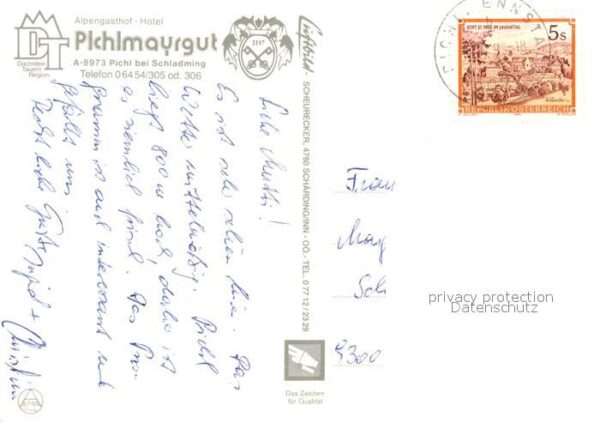 Alpengasthof - Hotel
Pichlmayrgut
A-8973 Pichl bei Schladming
Telefon 06454/305 od. 306
DT
Dachstein
Tauern
Region
1117
Luftbild - SCHEURECKER, 4780 SCHÄRDING/INN - OÖ. - TEL. 07712/2329
Liebe Mutti!
Es ist sehr schön hier. Das
Wetter Pichl
liegt 800 m hoch, daher ist
es ziemlich frisch. Das Pro-
gramm ist auch interessant und
gefällt uns
Recht liebe Grüße Ingrid +
Christian
STIFT ST. PAUL IM LAVANTTAL
5s
REPUBLIK ÖSTERREICH
PICHL ENNSTAL
Frau
9300
privacy protection
Datenschutz
Das Zeichen
für Qualität